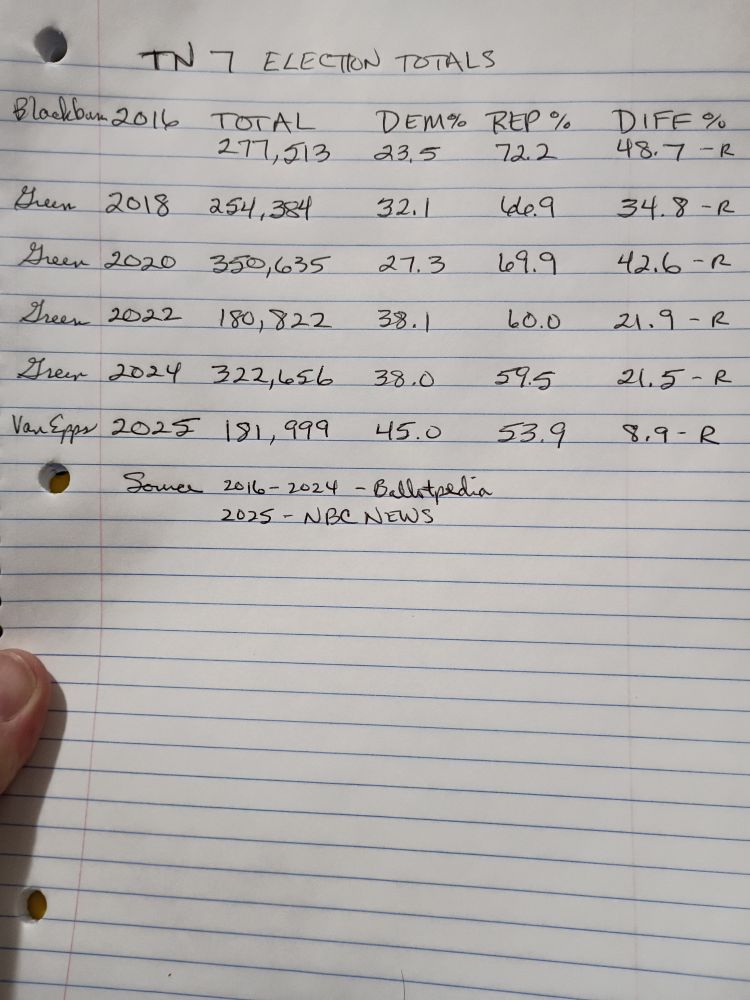 TN 7 ELECTION TOTALS
Blackburn 2016 TOTAL DEM% REP % DIFF %
277,513 23.5 72.2 48.7 - R
Green 2018 254,384 32.1 66.9 34.8 - R
Green 2020 350,635 27.3 69.9 42.6 - R
Green 2022 180,822 38.1 60.0 21.9 - R
Green 2024 322,656 38.0 59.5 21.5 - R
Van Epps 2025 181,999 45.0 53.9 8.9 - R
Source 2016-2024 - Ballotpedia
2025 - NBC NEWS